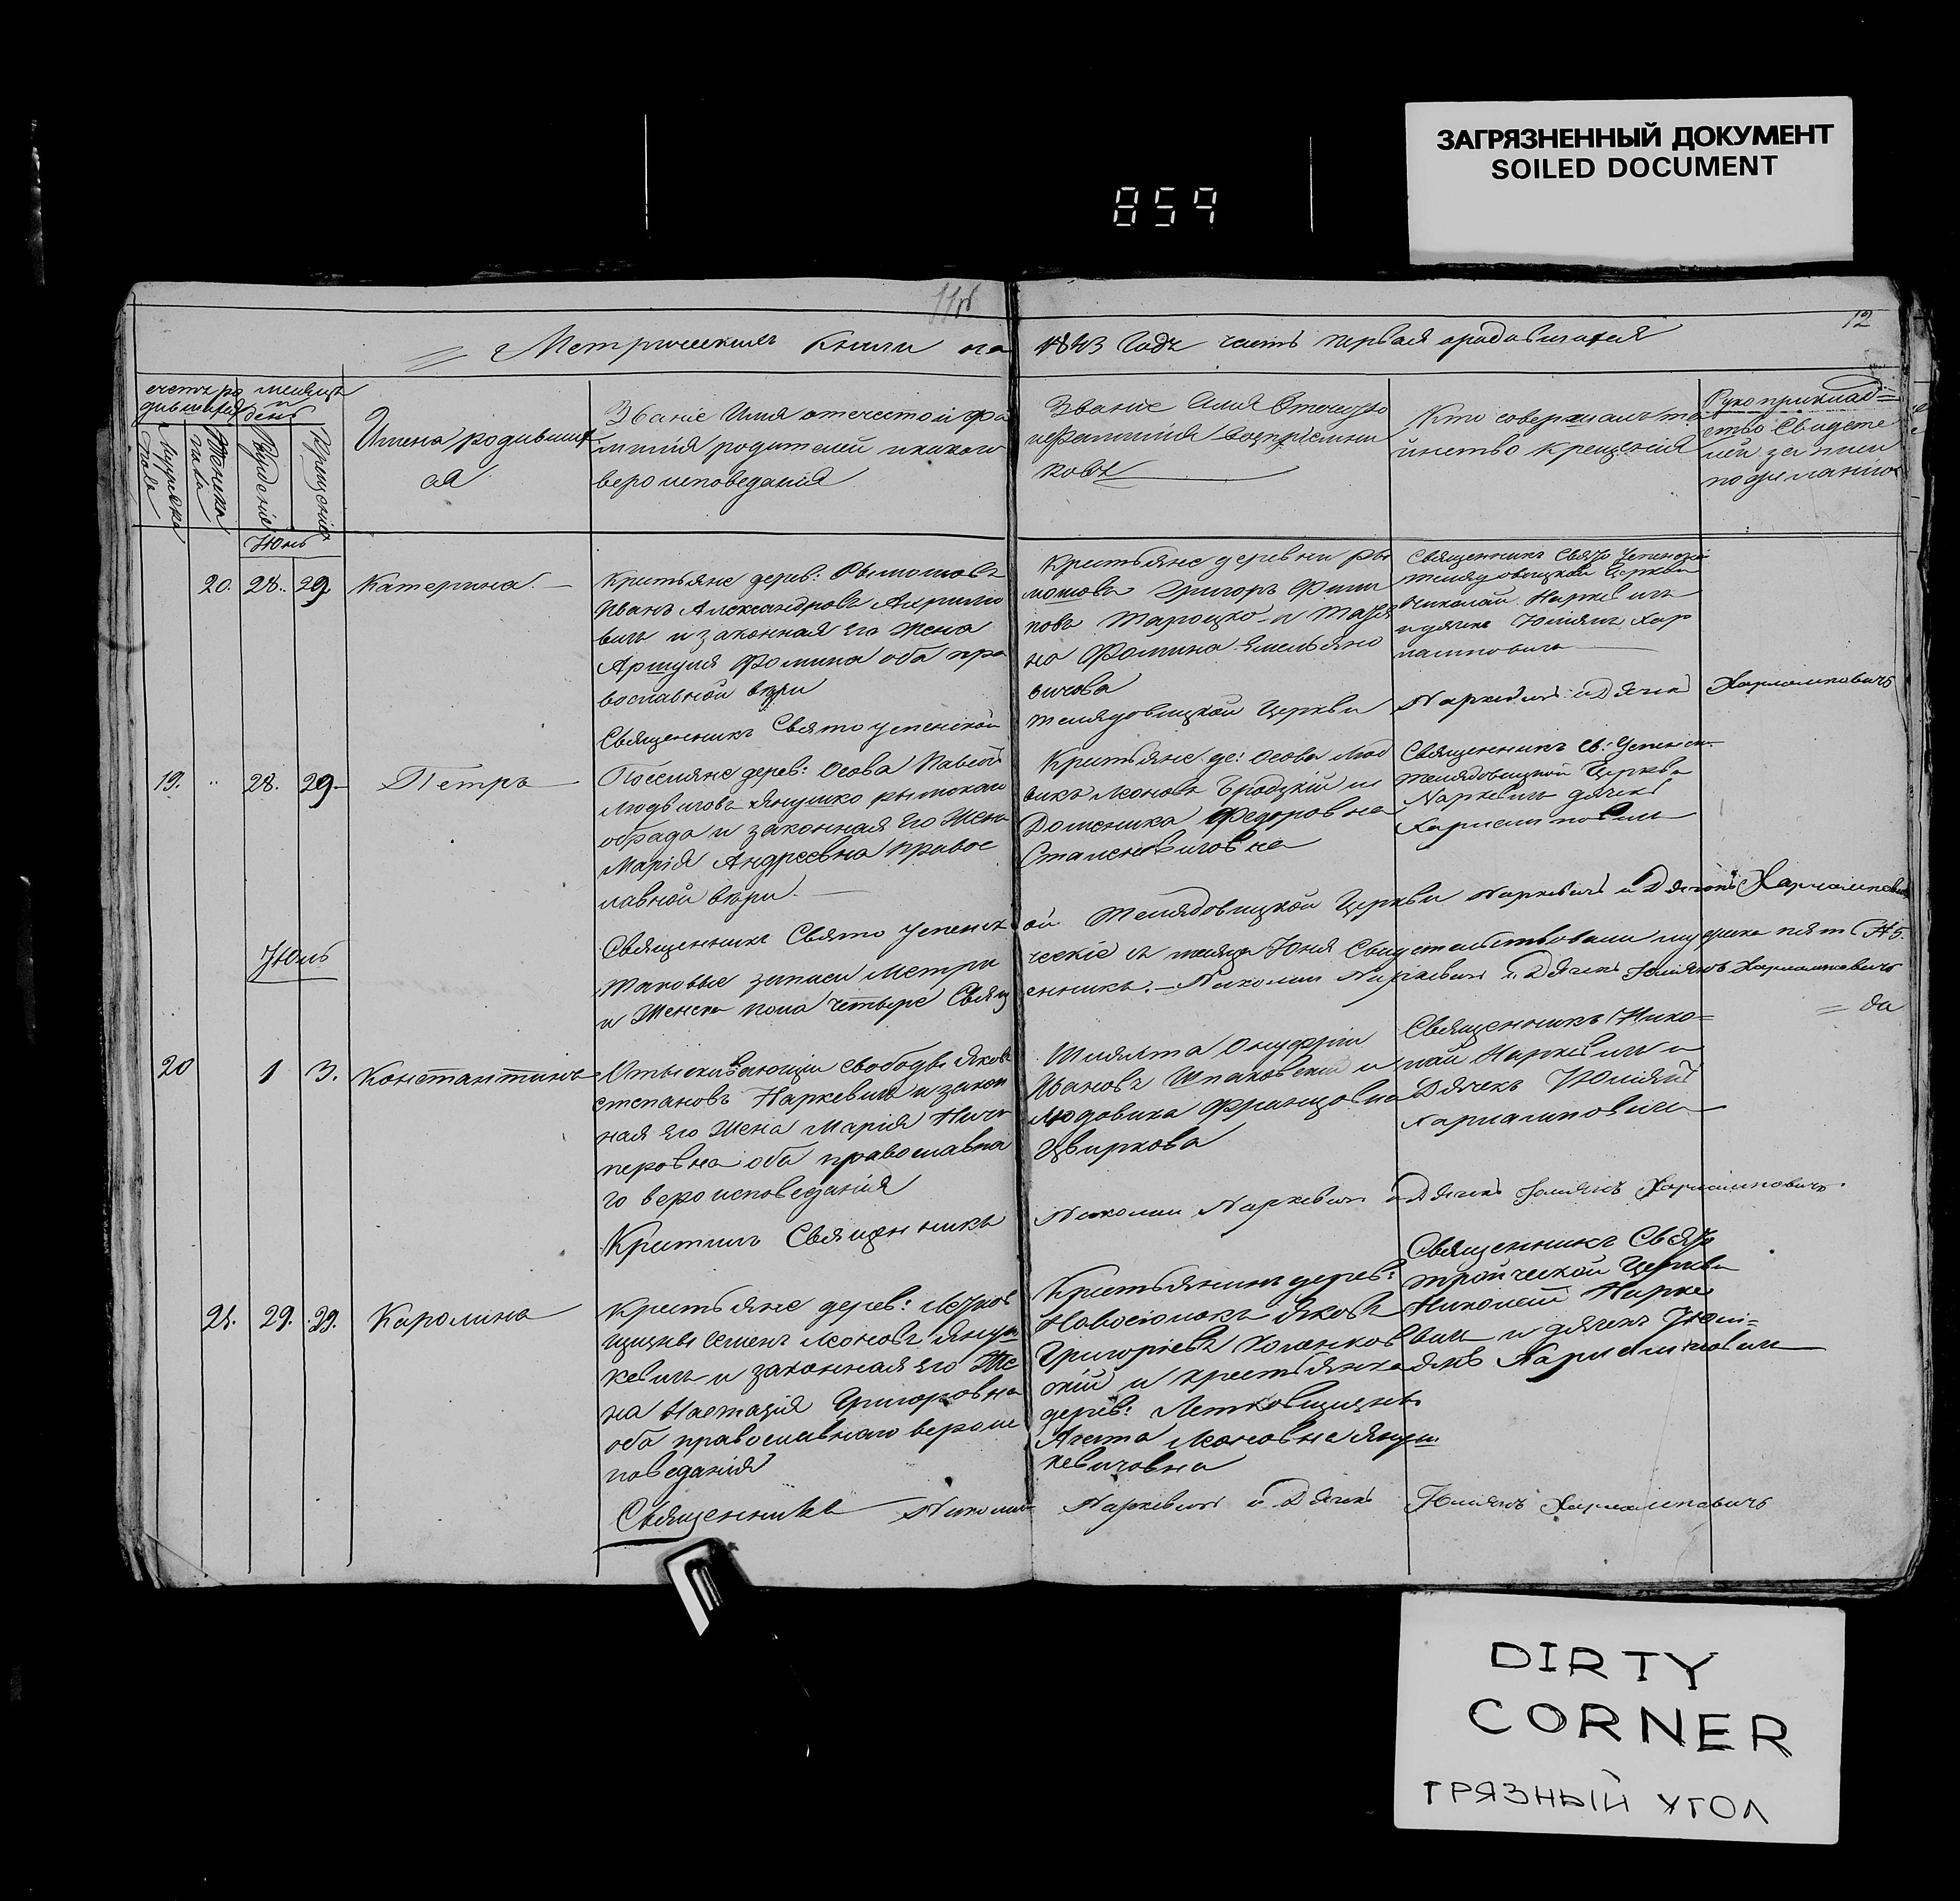 ЗАГРЯЗНЕННЫЙ ДОКУМЕНТ
SOILED DOCUMENT
859
12
Метрической Книги на 1843 Годъ часть первая о родившихся
счетъ родившихся
месяцъ и день
Мужеска пола
Женска пола
Рожденія
Крещенія
Имена родившихся
Званіе Имя отечество и фамилія родителей и какого вероисповеданія
Званіе Имя Отечество и фамилія воспріемниковъ
Кто совершалъ таинство крещенія
Рукоприкладство свидетелей записи по желанію
Юнь
20. 28. 29. Катерина
Крестьяне дерев:
Иванъ Александровъ
вичъ и законная его жена
Фомина оба пра
вославной веры
Крестьяне деревни Ры
Григоръ Фили
повъ и Татья
на Фомина Емельяно
вичова
Священникъ Свято Успенской
Телядовицкой Церкви
Николай Наркевичъ
и дячекъ Юліянъ Хар
лампович
Священникъ Свято Успенской
Телядовицкой Церкви Наркевичъ и Дячекъ Харлампович
19. 28. 29. Петръ
дерев: Осова Павелъ
Людвиговъ Янушко рымскаго
обрада и законная его Жена
Марія Андреевна правос
лавной веры.
Крестьяне де: Осова Люд
викъ Леоновъ Бродцкій и
Доменика Федоровна
Священникъ Св: Успенск.
Телядовицкой Церкви
Наркевичъ дячекъ
Харлампович
Священникъ Свято Успенск
ой Телядовицкой Церкви Наркевичъ и Дячекъ Харлампович
Таковые записи Метри
ческіе за месяцъ Юня Свидетельствовали мужеска пят № 5.
и Женска пола четыре Свящ
енникъ. Николай Наркевичъ и Дячекъ Юліянъ Харлампович
Юль
20 1 3. Константинъ
Отыскивающій свободы Яковъ
Степановъ Наркевичъ и закон
ная его Жена Марія Ничи
перовна оба православна
го вероисповеданія
Шляхта Онуфрій
Ивановъ Шпаковскій и
Людовика Францовна
Цвиркова
Священникъ Нико
лай Наркевичъ и
Дячекъ Юліянъ
Харлампович
Крестилъ Священникъ
Николай Наркевичъ и Дячекъ Юліянъ Харлампович.
21. 29. 29. Каролина
Крестьяне дерев: Летков
щизны Семенъ Леоновъ Януш
кевичъ и законная его Же
на Настазія Григоровна
оба православнаго вероис
поведанія
Крестьянинъ дерев:
Новосіолокъ Яковъ
Григоріевъ
скій и крестьянка
дерев: Летковщизны
Агата Леоновна Януш
кевичовна
Священникъ Свято
Троической Церкви
Николай Нарке
вичъ и дячекъ Юлі
янъ Харлампович
Священникъ Николай Наркевичъ и Дячекъ Юліянъ Харлампович
DIRTY
CORNER
ГРЯЗНЫЙ УГОЛ